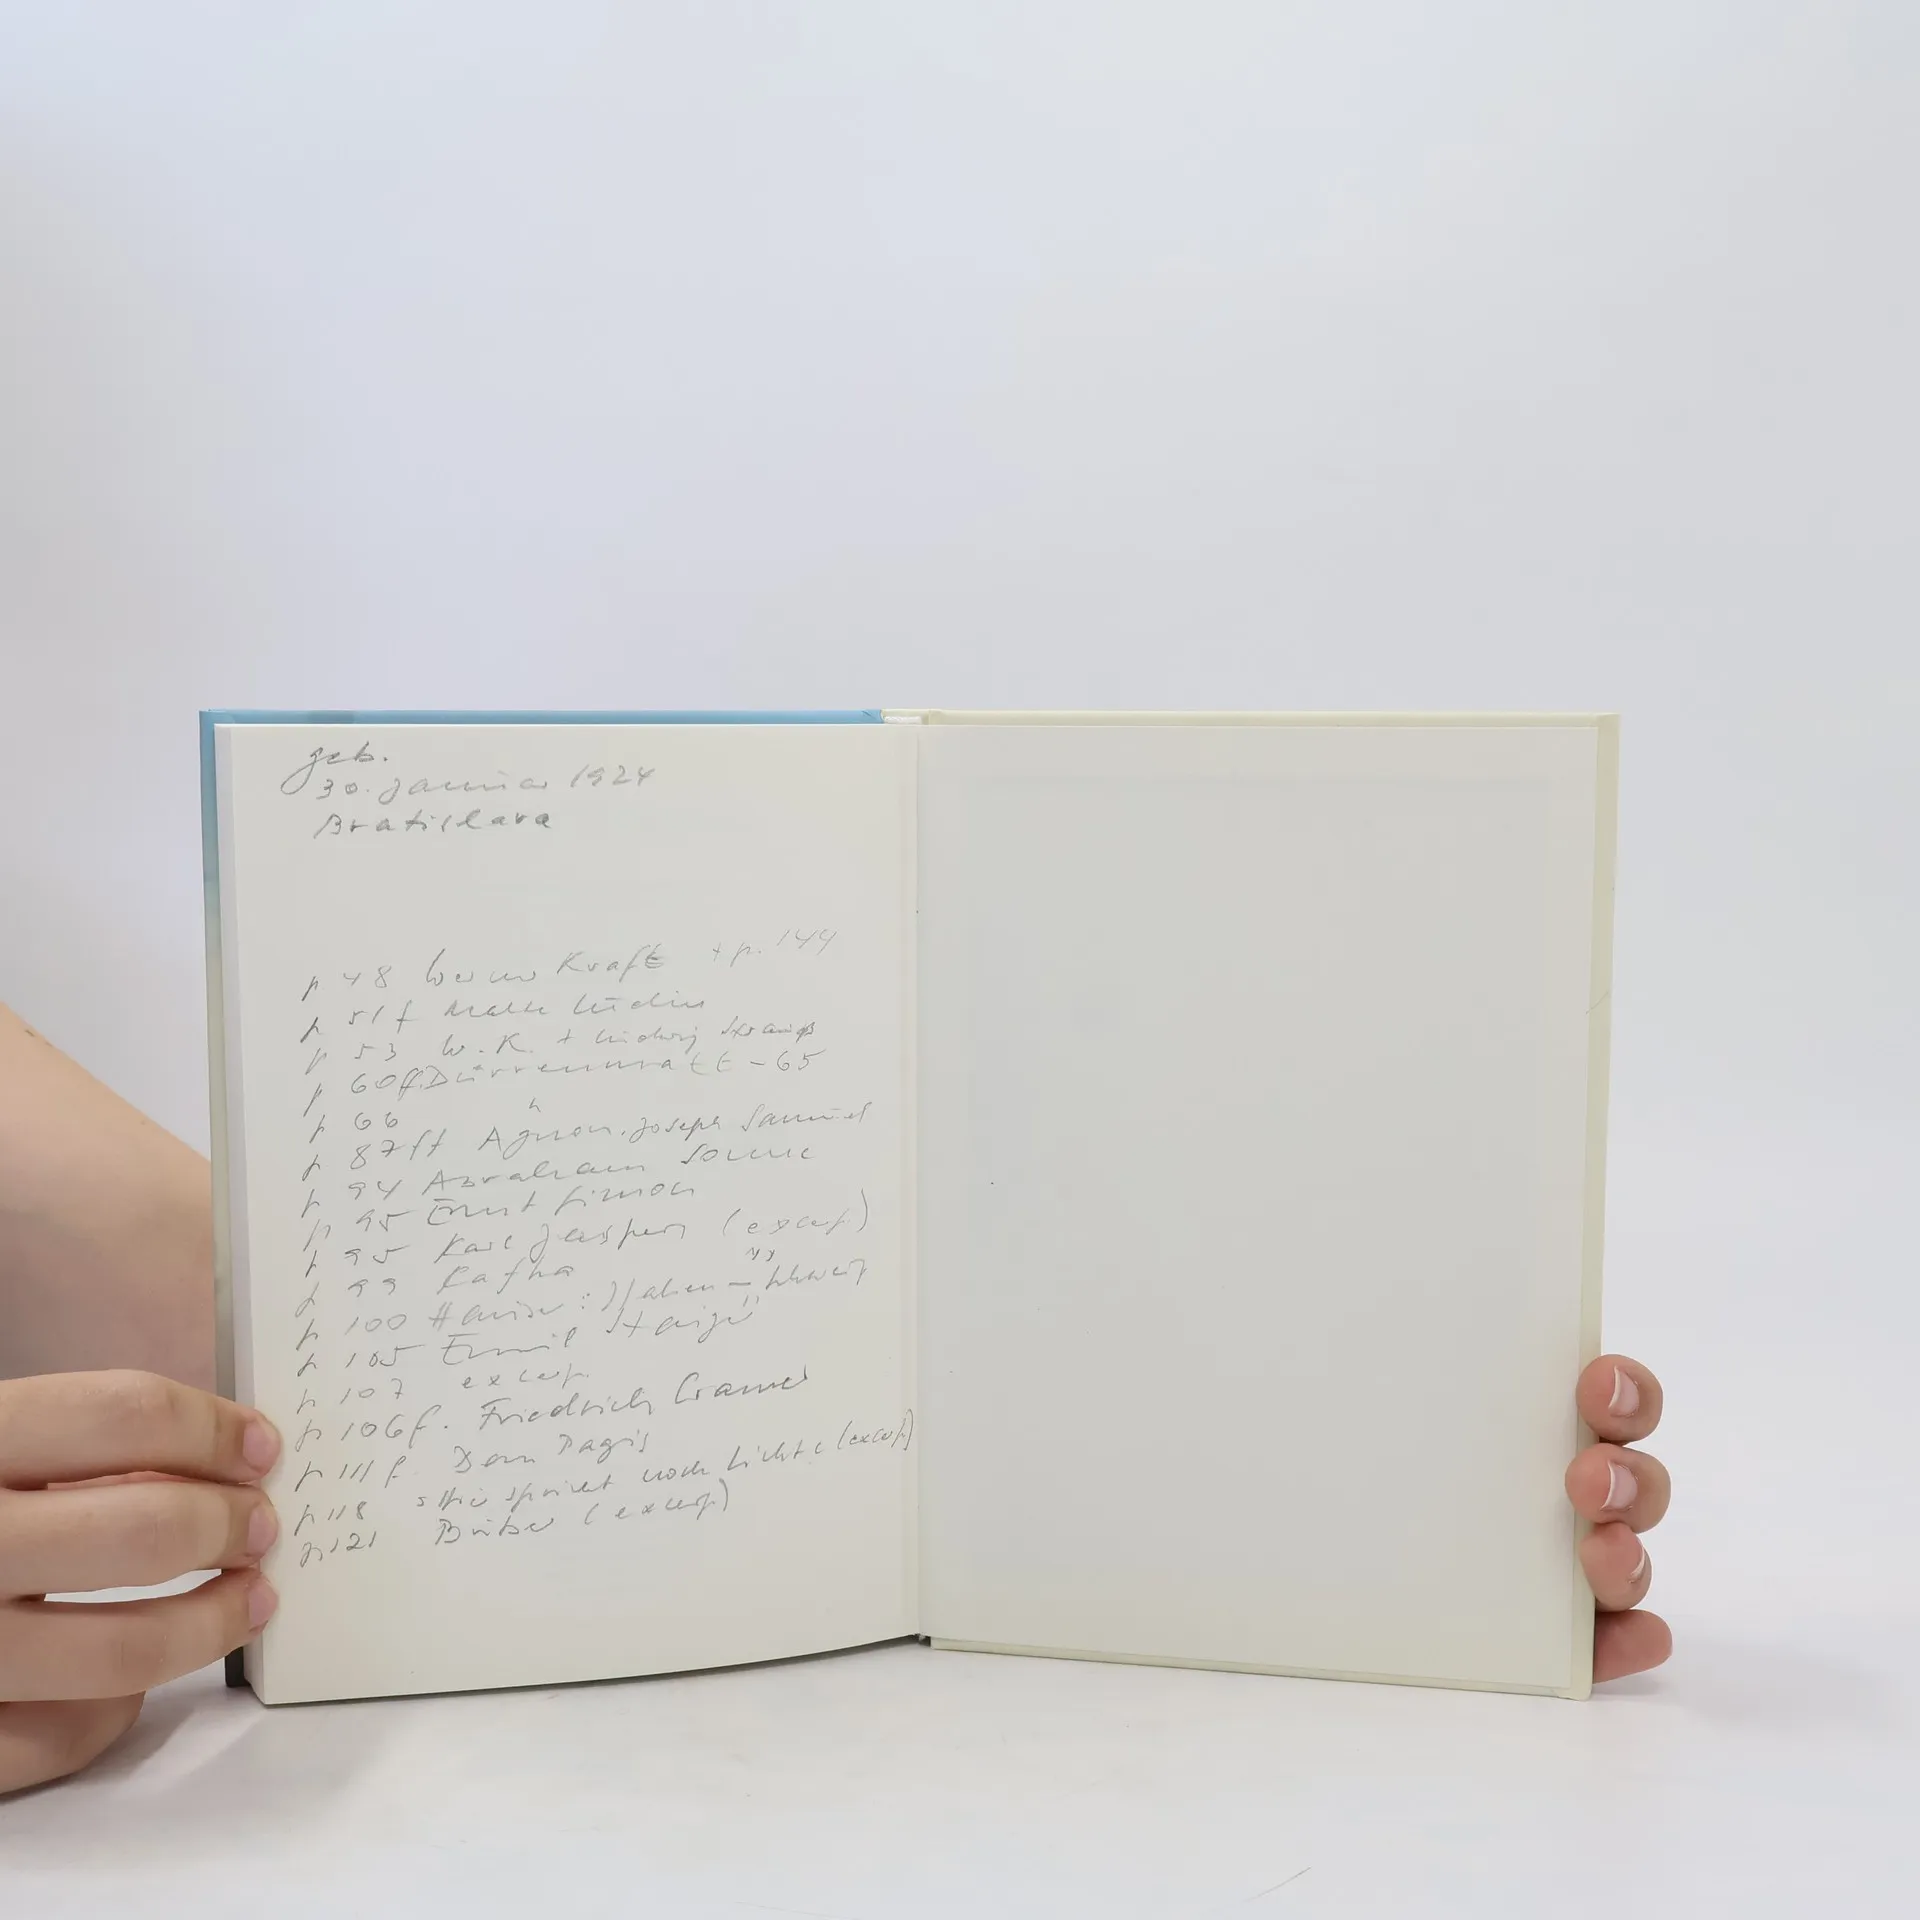 geb.
30. Januar 1924
Bratislava
p 48 Werner Kraft + p. 144
p 51f
p 53 W. K. + Ludwig Strauß
p 60ff. Dürrenmatt - 65
p 66
p 87ff Agnon. Joseph Samuel
p 94 Abraham Sonne
p 95 Ernst Simon
p 95 Karl Jaspers (excerp.)
p 99 Kafka
p 100
p 105 Emil Staiger
p 107 excerp.
p 106f. Friedrich Cramer
p 111f. Dan Pagis
p 118 spricht noch (excerp)
p 121 Buber (excerp)